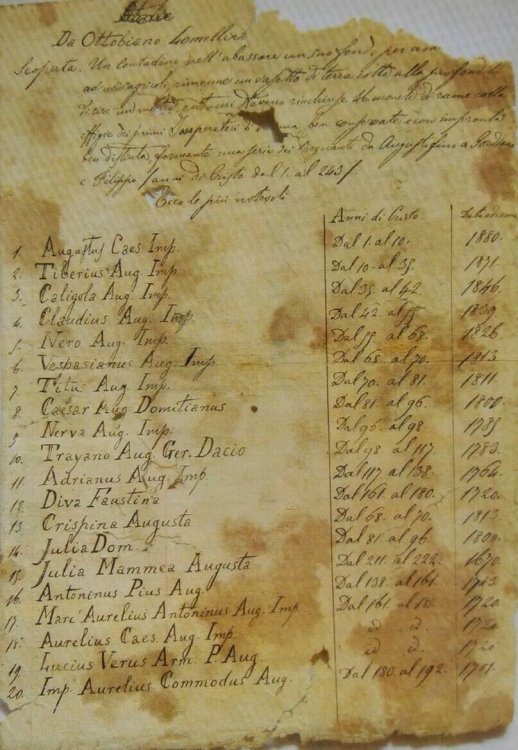 Da Ottobiano Lomellina
Scoperta. Un Contadino nell'abassare un suo fondo per non
ad uso agricoli rinvenne un vasetto di terra cotta alla profondità
di circa un metro, entro cui stavano rinchiuse 46 monete di rame colle
effigie dei primi Imperatori di Roma ben conservate e con impronta
ben distinta, formanti una serie dei Regnanti da Augusto fino a Gordiano
e Filippo anni di Cristo dal 1. al 243
Ecco le più notevoli
Anni di Cristo
1. Augustus Caes Imp. Dal 1. al 10. 1880.
2. Tiberius Aug. Imp. Dal 10. al 35. 1851.
3. Caligola Aug. Imp. Dal 35. al 42. 1846.
4. Claudius Aug. Imp. Dal 42. al 55. 1839.
5. Nero Aug. Imp. Dal 55. al 68. 1826.
6. Vespasianus Aug. Imp. Dal 68. al 70. 1813
7. Titu Aug Imp. Dal 70. al 81. 1811.
8. Caesar Aug Domitianus Dal 81. al 96. 1800.
9. Nerva Aug. Imp. Dal 96. al 98. 1785
10. Trayano Aug. Ger. Dacio Dal 98 al 117. 1783.
11. Adrianus Aug Imp Dal 117 al 138. 1764.
12. Diva Faustina Dal 161. al 180. 1720.
13. Crispina Augusta Dal 68. al 70. 1813.
14. Julia Dom. Dal 81. al 96. 1800.
15. Julia Mammea Augusta Dal 211. al 222. 1670.
16. Antoninus Pius Aug. Dal 138. al 161. 1743
17. Marc' Aurelius Antoninus Aug. Imp. Dal 161. al 180 1720
18. Aurelius Caes Aug. Imp. id id. 1720
19. Lucius Verus Arm. P. Aug. id id. 1720
20. Imp. Aurelius Commodus Aug. Dal 180. al 192. 1701.